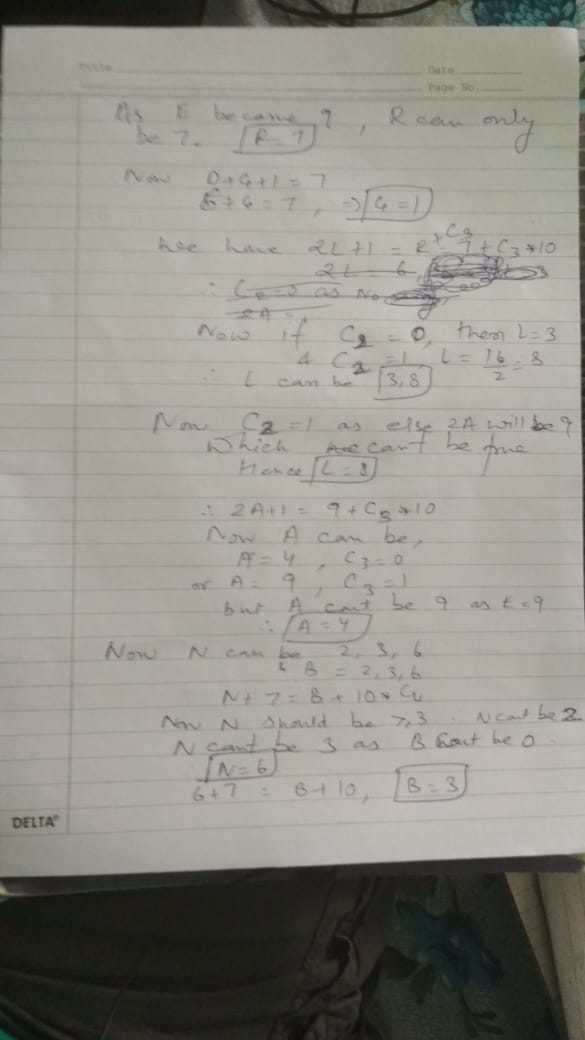 Date
Page No.
As E became 9, R can only
be 7. R = 7
Now D+G+1 = 7
5+G = 7, ⇒ G = 1
we have 2L+1 = R + C3 7 + C3*10
2L = 6
∴ C2=0 as No
2A =
Now if C2 = 0, then L = 3
& C2 = 1, L = 16/2 = 8
∴ L can be 3,8
Now C2 = 1 as else 2A will be 9
which can't be true
Hence L = 8
∴ 2A+1 = 9 + C3*10
Now A can be,
A = 4, C3 = 0
or A = 9, C3 = 1
but A can't be 9 as E = 9
∴ A = 4
Now N can be 2, 3, 6
& B = 2, 3, 6
N + 7 = B + 10 * C4
Now N should be ≥ 3. N can't be 2
N can't be 3 as B can't be 0
∴ N = 6
6+7 = B+10, B = 3
DELTA®